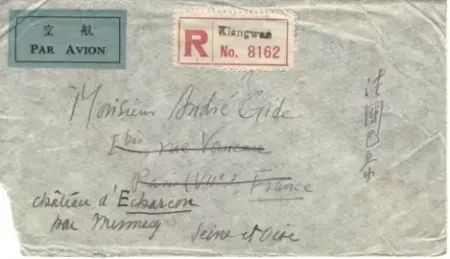 空 航
PAR AVION
Kiangwan
R No. 8162
Monsieur André Gide
1bis, rue Vaneau
Paris (VIIe), France
château d'Écharcon
par Mennecy
Seine et Oise
法國巴黎